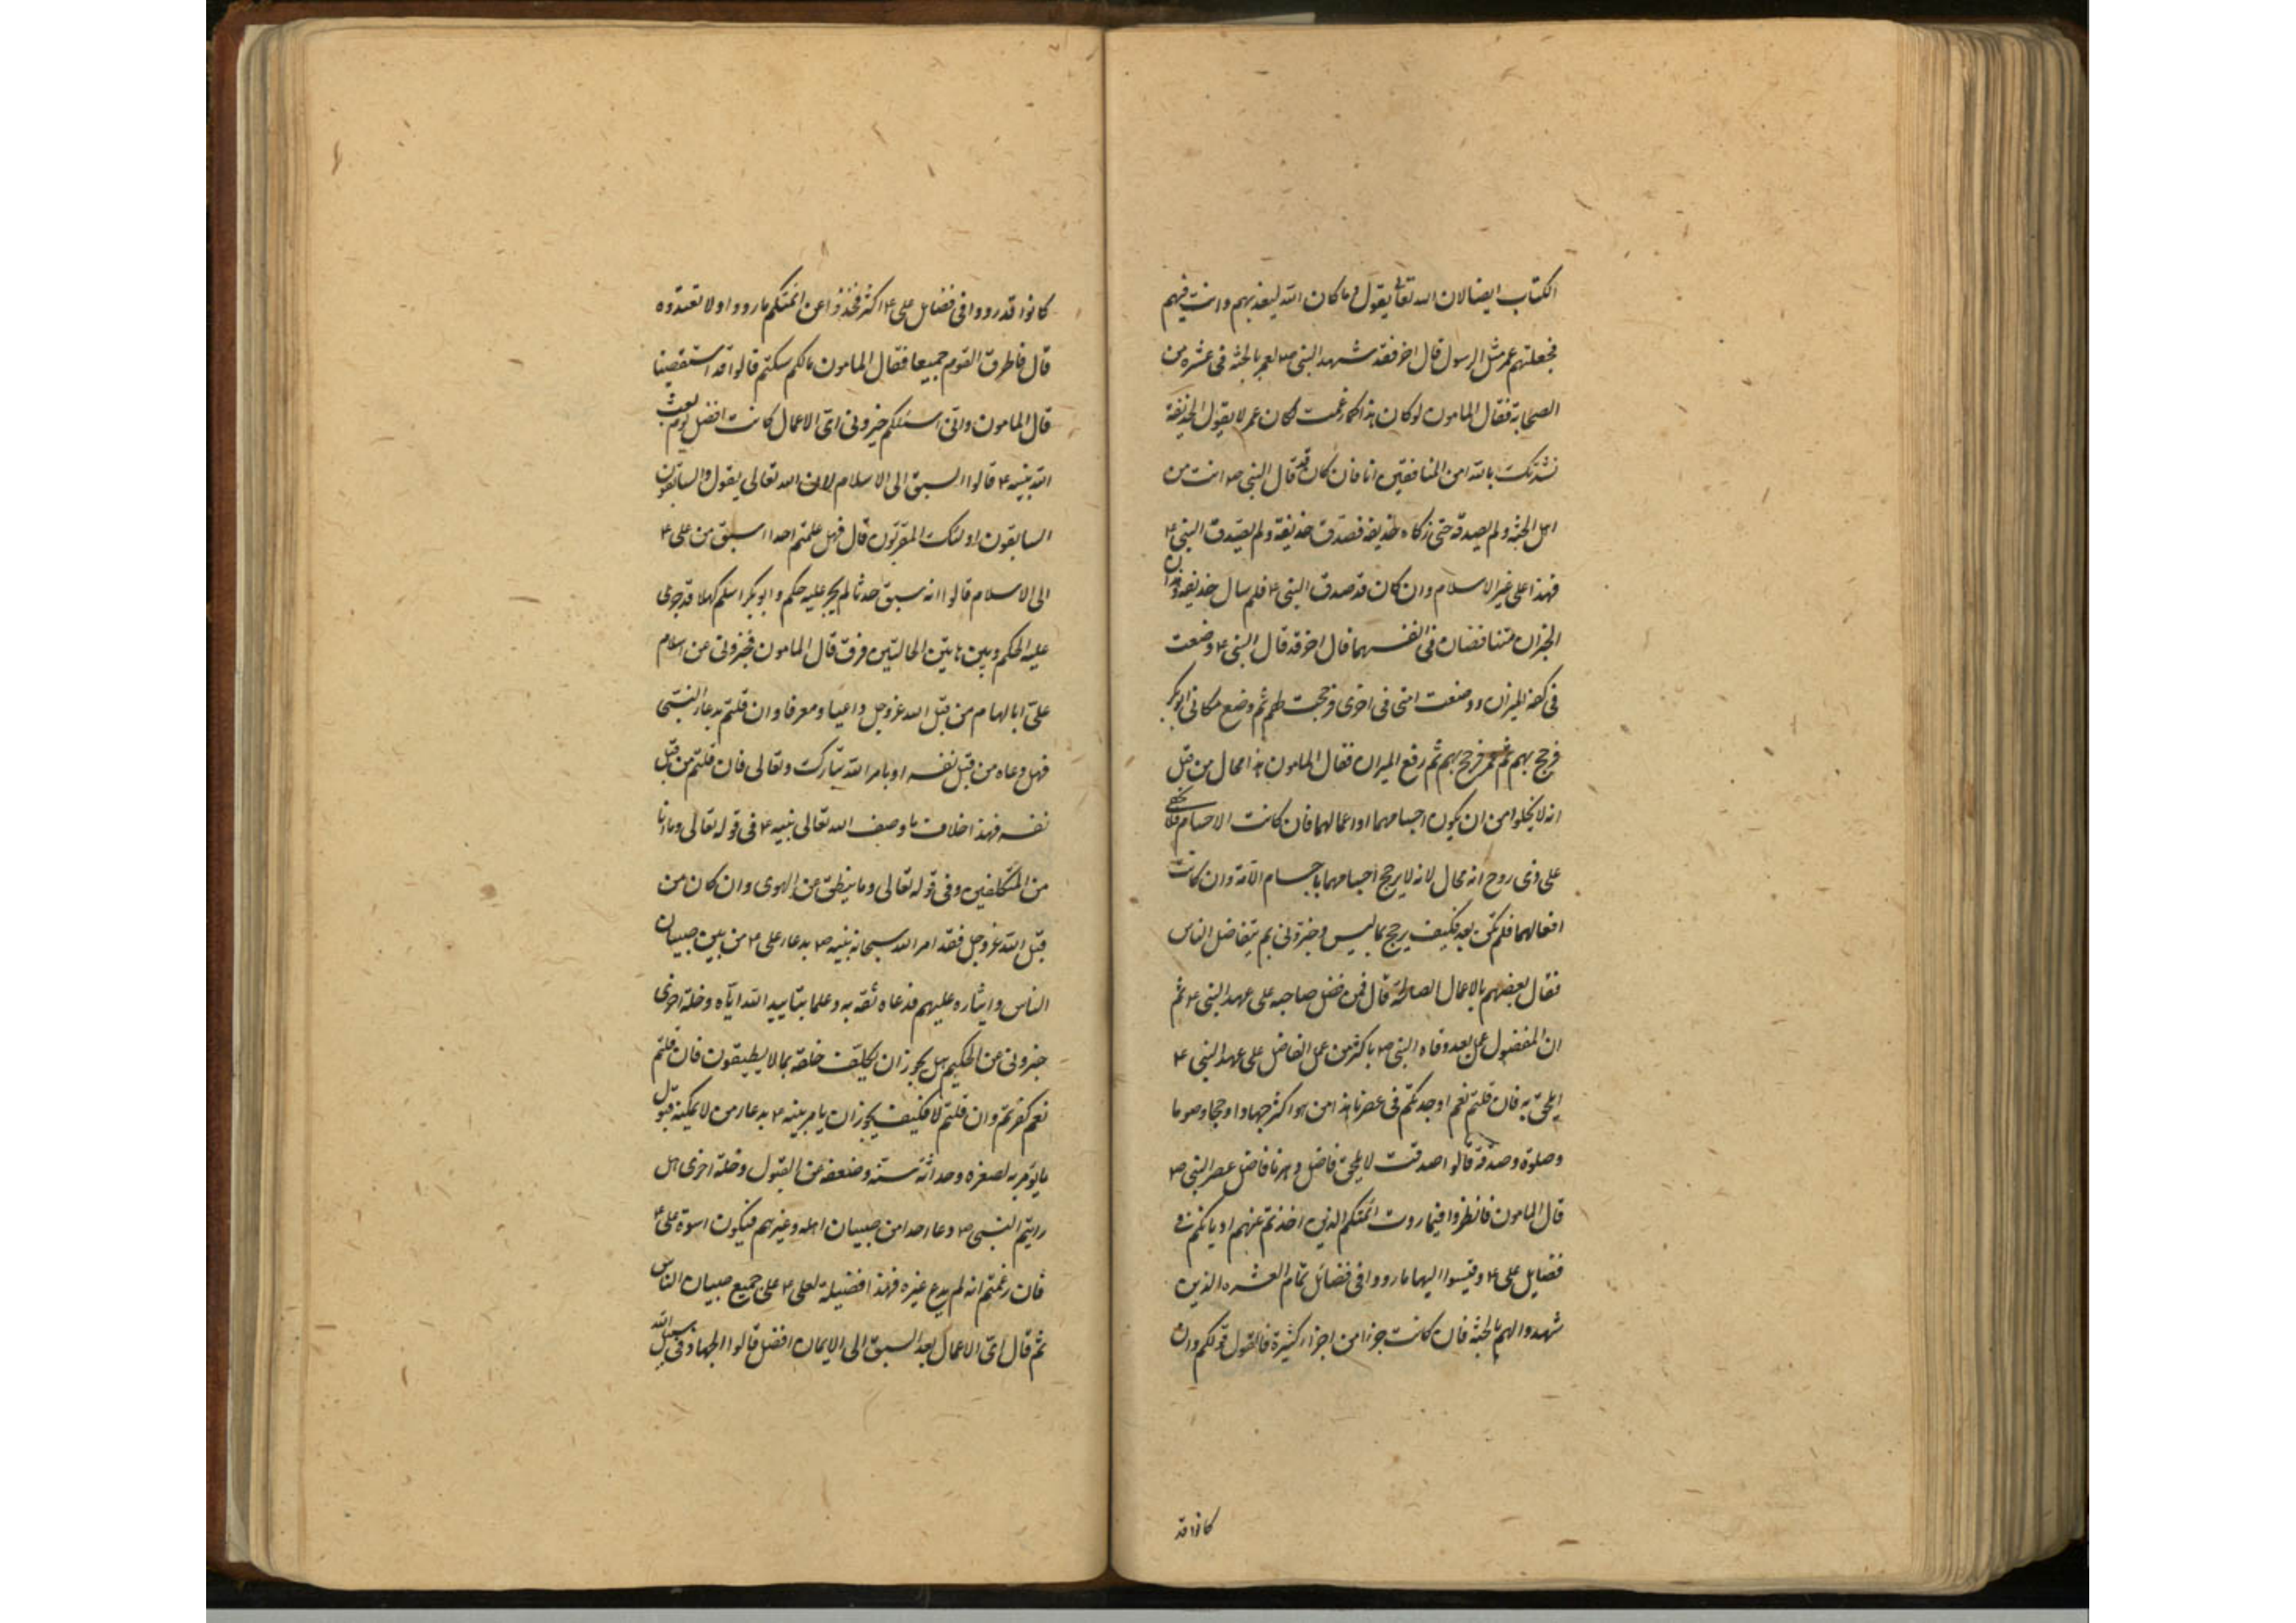 الكتاب ايضا لان الله تعالى يقول وما كان الله ليعذبهم وانت فيهم
فجعلتم عمر مثل الرسول قال اخر فقد شهد النبى ص لعمر بالجنة فى عشره من
الصحابة فقال المامون لو كان هذا كما زعمت لكان عمر لا يقول لحذيفة
نشدتك بالله امن المنافقين انا فان كان قد قال النبى ص انت من
اهل الجنة ولم يصدقه حتى زكاه حذيفه فصدق حذيفة ولم يصدق النبى ع
فهذا على غير الاسلام وان كان قد صدق النبى ع فلم سال حذيفه وهذان
الخبران متناقضان فى انفسهما قال اخر فقد قال النبى ع وضعت
فى كفة الميزان ووضعت امتى فى اخرى فرجحت بهم ثم وضع مكانى ابو بكر
فرجح بهم ثم عمر فرجح بهم ثم رفع الميزان فقال المامون هذا محال من قبل
انه لا يخلوا من ان يكون اجسامهما او اعمالهما فان كانت الاجسام فلا يخفى
على ذى روح انه محال لانه لا يرجح اجسامهما باجسام الامة وان كانت
افعالهما فلم تكن بعد فكيف يرجح بما ليس وخبرونى بم يتفاضل الناس
فقال بعضهم بالاعمال الصالحة قال فمن فضل صاحبه على عهد النبى ع ثم
ان المفضول عمل بعد وفاه النبى ص باكثر من عمل الفاضل على عهد النبى ع
ايلحق به فان قلتم نعم اوجدتكم فى عصرنا هذا من هو اكثر جهادا وحجا وصوما
وصلوة وصدقة قالوا صدقت لا يلحق فاضل دهرنا فاضل عصر النبى ص
قال المامون فانظروا فيما روت ائمتكم الذين اخذتم عنهم اديانكم فى
فضايل على ع وقيسوا اليها ما رووا فى فضائل تمام العشره الذين
شهدوا لهم بالجنة فان كانت جزءا من اجزاء كثيرة فالقول قولكم وان
كانوا قد
كانوا قد رووا فى فضايل على ع اكثر فخذوا عن ائمتكم ما رووا ولا تعتدوه
قال فاطرق القوم جميعا فقال المامون مالكم سكتم قالوا قد استقصينا
قال المامون وانى اسئلكم خبرونى اى الاعمال كانت افضل يوم بعث
الله نبيه ع قالوا السبق الى الاسلام لان الله تعالى يقول والسابقون
السابقون اولئك المقربون قال فهل علمتم احدا اسبق من على ع
الى الاسلام قالوا انه سبق حدثا لم يجر عليه حكم وابو بكر اسلم كهلا قد جرى
عليه الحكم وبين هاتين الحالتين فرق قال المامون فخبرونى عن اسلام
على ابالهام من قبل الله عز وجل داعيا ومعرفا وان قلتم بدعاء النبى
فهل دعاه من قبل نفسه او بامر الله تبارك وتعالى فان قلتم من قبل
نفسه فهذا خلاف ما وصف الله تعالى نبيه ع فى قوله تعالى وما انا
من المتكلفين وفى قوله تعالى وما ينطق عن الهوى وان كان من
قبل الله عز وجل فقد امر الله سبحانه نبيه ص بدعاء على ع من بين صبيان
الناس وايثاره عليهم فدعاه ثقة به وعلما بتاييد الله اياه وخلة اخرى
خبرونى عن الحكيم هل يجوز ان يكلف خلقه بما لا يطيقون فان قلتم
نعم كفرتم وان قلتم لا فكيف يجوز ان يامر نبيه ع بدعاء من لا يمكنه قبول
ما يؤمر به لصغره وحداثة سنه وضعفه عن القبول وخلة اخرى هل
رايتم النبى ص دعا احدا من صبيان اهله وغيرهم فيكون اسوة على ع
فان زعمتم انه لم يدع غيره فهذا فضيلة لعلى ع على جميع صبيان الناس
ثم قال اى الاعمال بعد السبق الى الايمان افضل قالوا الجهاد فى سبيل الله